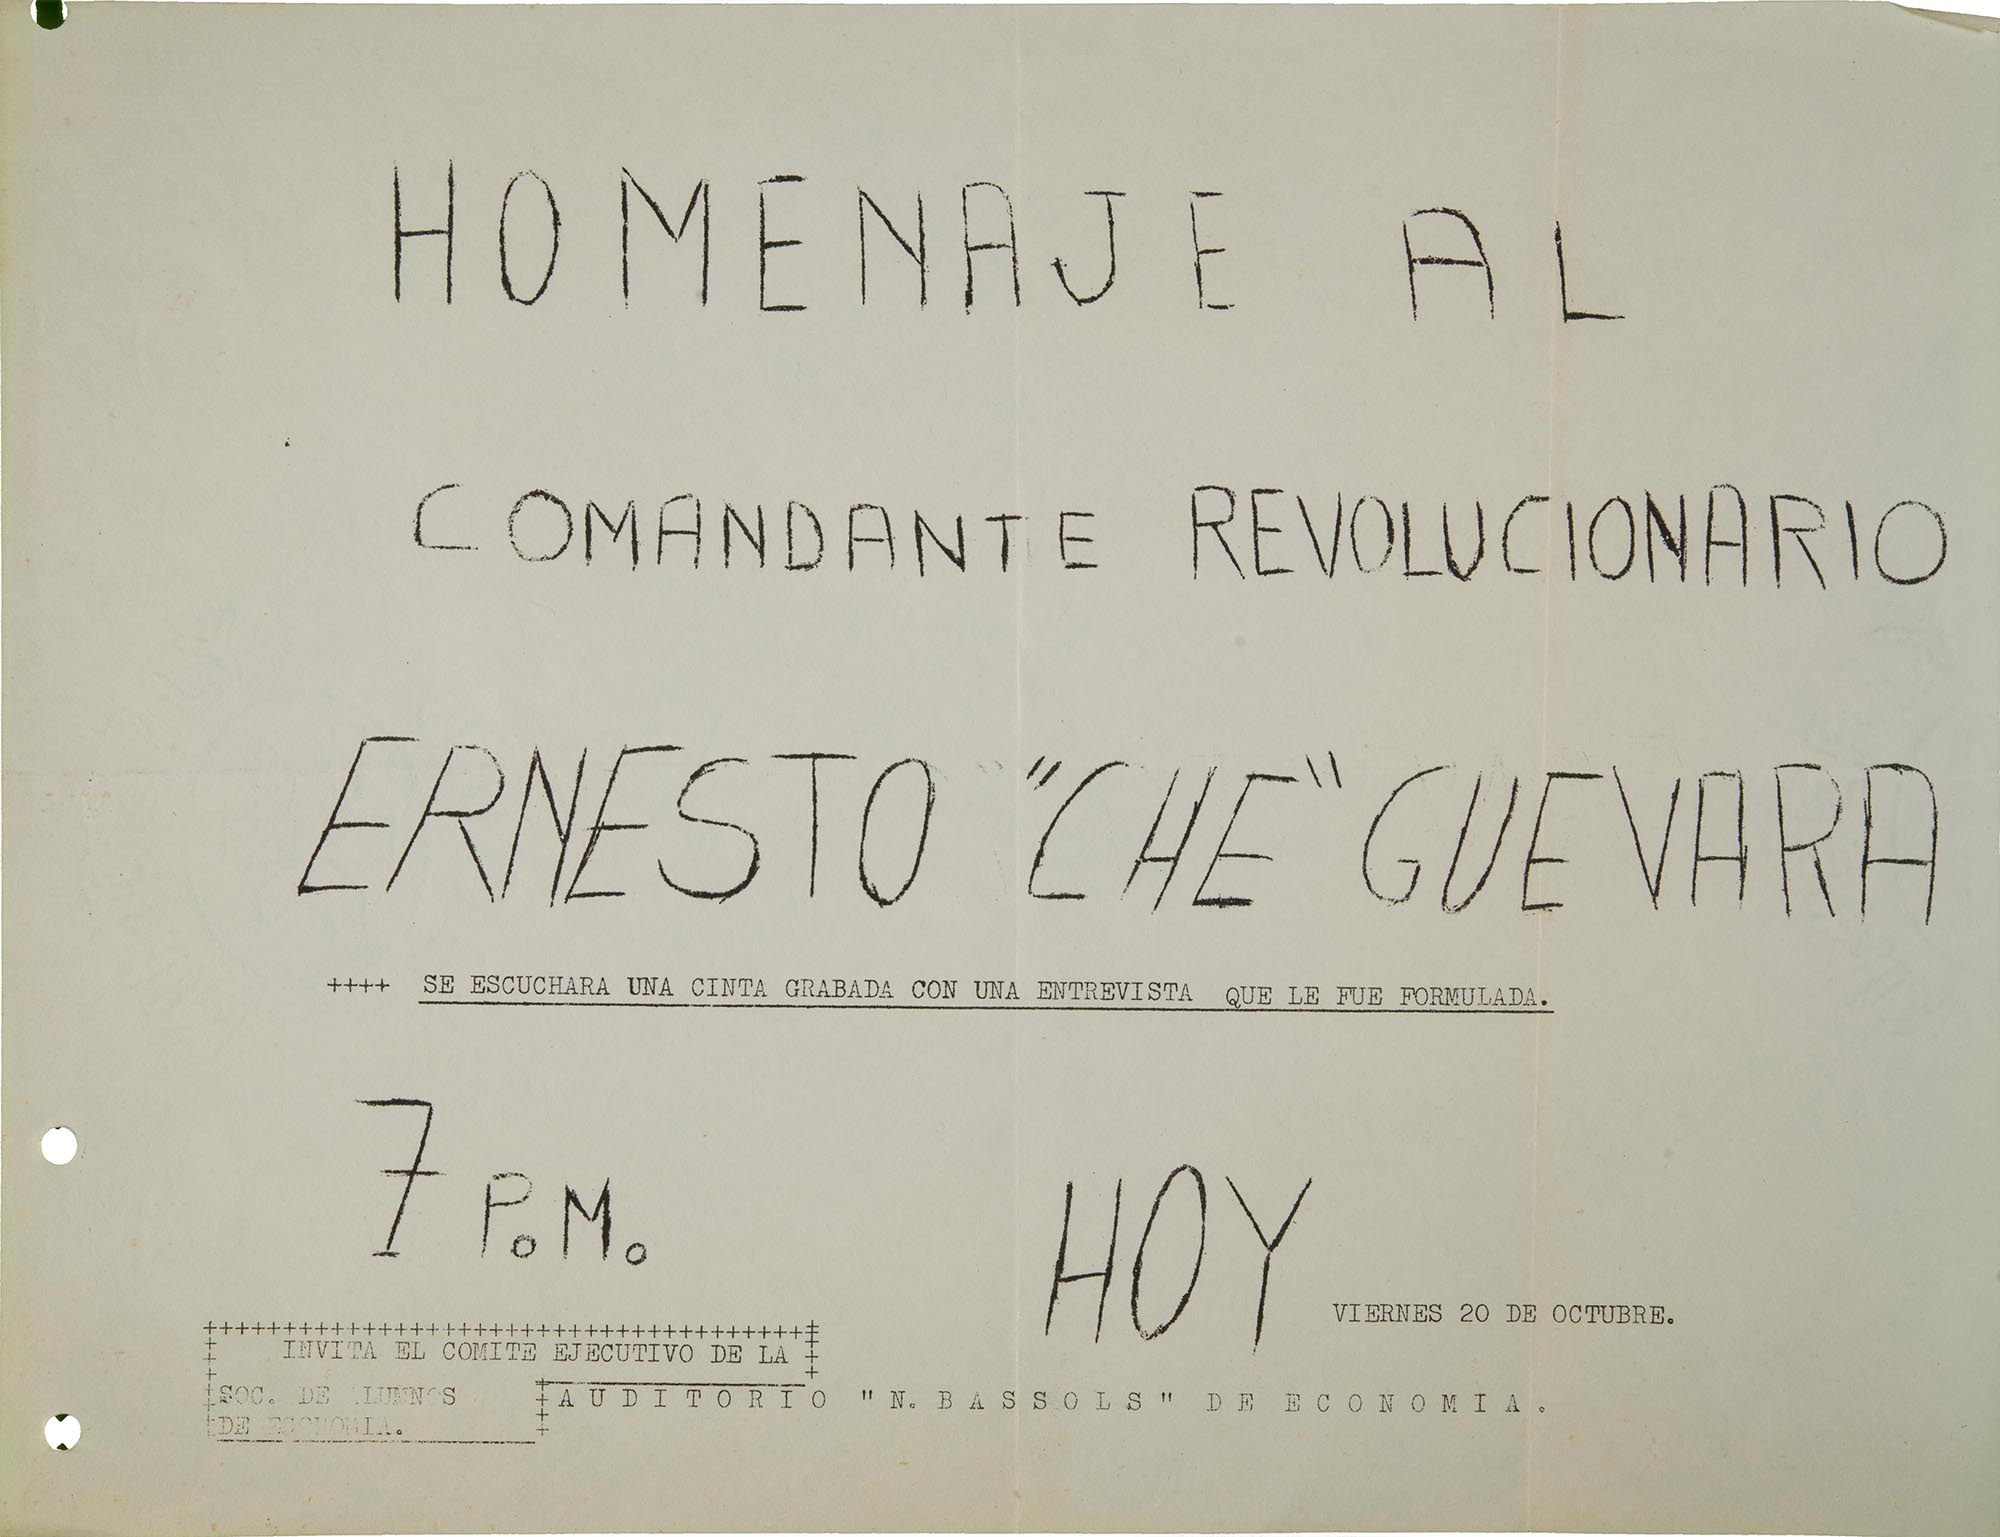 HOMENAJE AL
COMANDANTE REVOLUCIONARIO
ERNESTO "CHE" GUEVARA
++++ SE ESCUCHARA UNA CINTA GRABADA CON UNA ENTREVISTA QUE LE FUE FORMULADA.
7 P.M. HOY VIERNES 20 DE OCTUBRE.
INVITA EL COMITE EJECUTIVO DE LA
SOC. DE ALUMNOS
DE ECONOMIA.
AUDITORIO "N. BASSOLS" DE ECONOMIA.